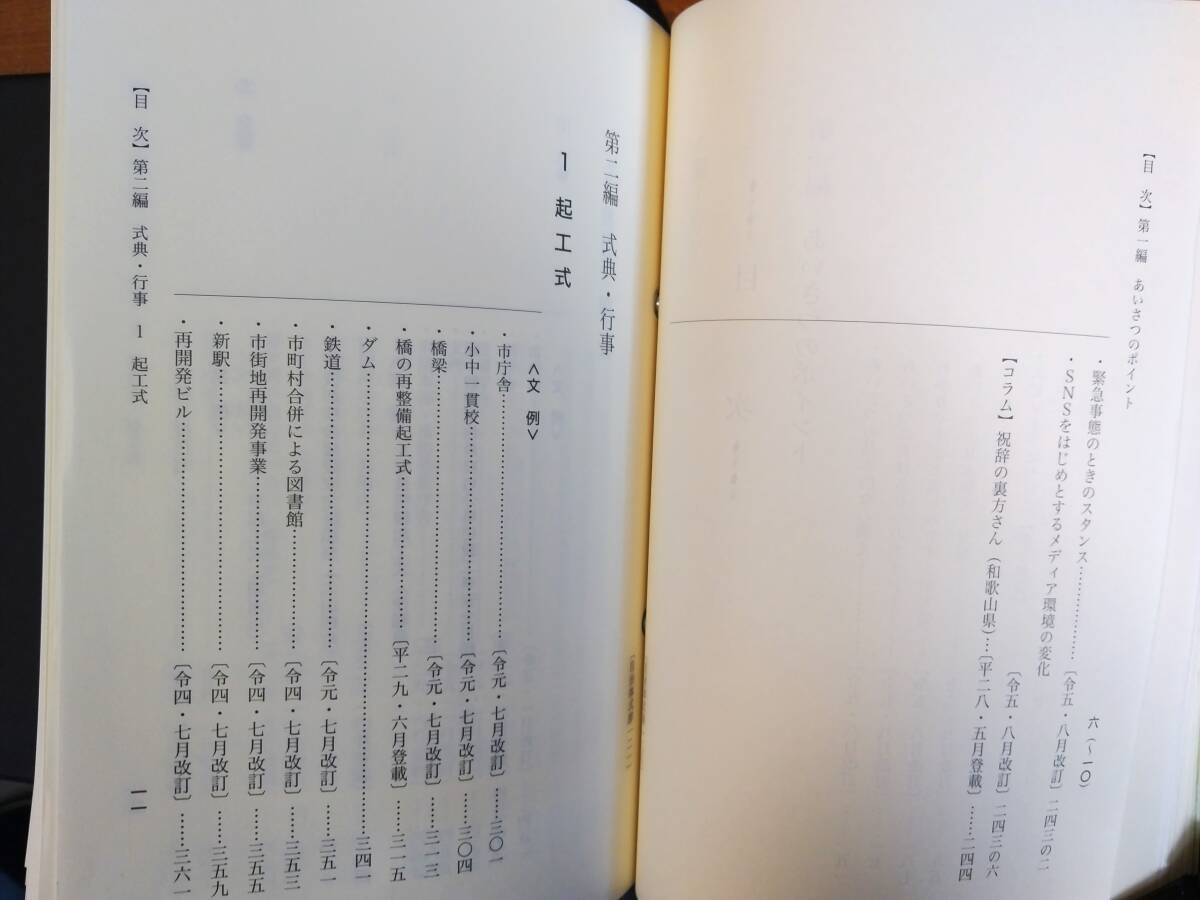 【目　次】第一編　あいさつのポイント
・緊急事態のときのスタンス…………………〔令五・八月改訂〕二四三の二
・SNSをはじめとするメディア環境の変化
〔令五・八月改訂〕二四三の六
【コラム】祝辞の裏方さん（和歌山県）…〔平二八・五月登載〕……二四四
六（～一〇）
第二編　式典・行事
1　起工式
＜文　例＞
・市庁舎……………………………〔令元・七月改訂〕……三〇一
・小中一貫校………………………〔令元・七月改訂〕……三〇四
・橋梁………………………………〔令元・七月改訂〕……三一三
・橋の再整備起工式………………〔平二九・六月登載〕……三一五
・ダム…………………………………………………………三四一
・鉄道………………………………〔令元・七月改訂〕……三五一
・市町村合併による図書館………〔令四・七月改訂〕……三五三
・市街地再開発事業………………〔令四・七月改訂〕……三五五
・新駅………………………………〔令四・七月改訂〕……三五九
・再開発ビル………………………〔令四・七月改訂〕……三六一
【目　次】第二編　式典・行事　1　起工式
一一